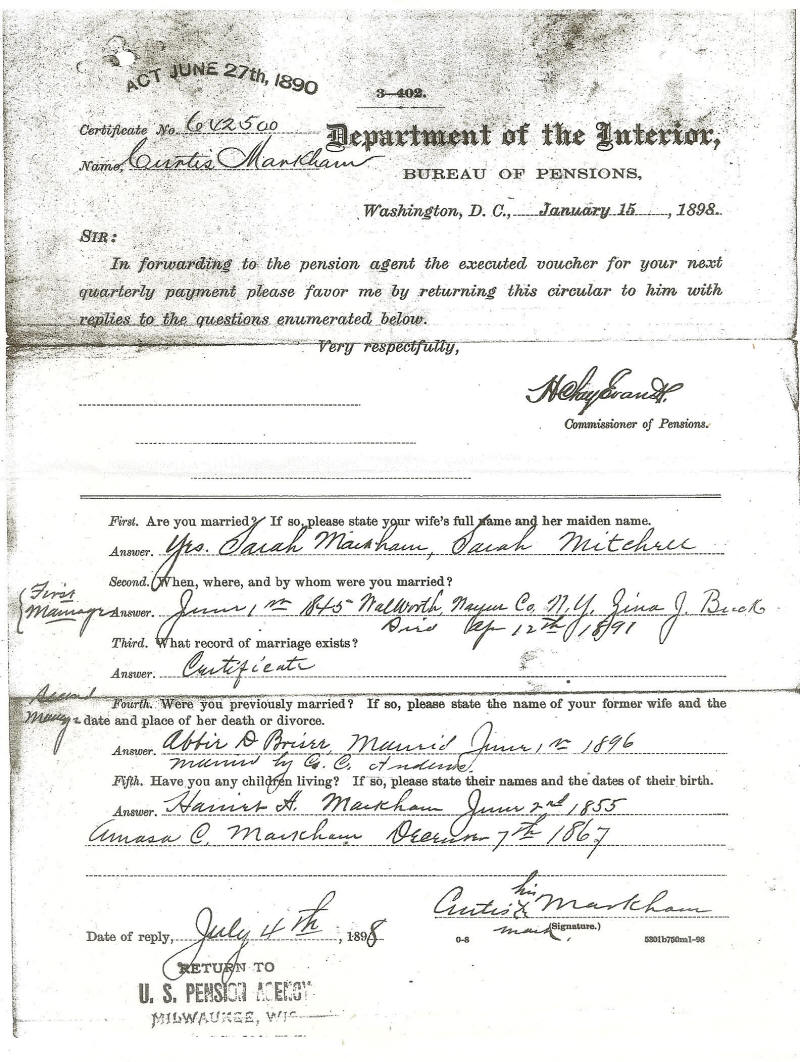 ACT JUNE 27th, 1890
3—402.
Certificate No. 642500
Department of the Interior,
Name, Curtis Markham
BUREAU OF PENSIONS,
Washington, D. C., January 15, 1898.
SIR:
In forwarding to the pension agent the executed voucher for your next
quarterly payment please favor me by returning this circular to him with
replies to the questions enumerated below.
Very respectfully,
H Clay Evans.
Commissioner of Pensions.
First. Are you married? If so, please state your wife's full name and her maiden name.
Answer. Yes. Sarah Markham, Sarah Mitchell
Second. When, where, and by whom were you married?
{First
Marriage
Answer. June 1st 1845 Walworth, Wayne Co, N.Y. J. Buck
Died Ap 12th 1891
Third. What record of marriage exists?
Answer. Certificate
Second
Marriage
Fourth. Were you previously married? If so, please state the name of your former wife and the
date and place of her death or divorce.
Answer. Abbie D Married June 1st 1896
married by C.
Fifth. Have you any children living? If so, please state their names and the dates of their birth.
Answer. Harriet A. Markham June 2nd 1855
Amasa C. Markham December 7th 1867
his
Curtis X Markham
mark. (Signature.)
Date of reply, July 4th, 1898
0-8 5301b750m1-98
RETURN TO
U. S. PENSION AGENCY
MILWAUKEE, WIS